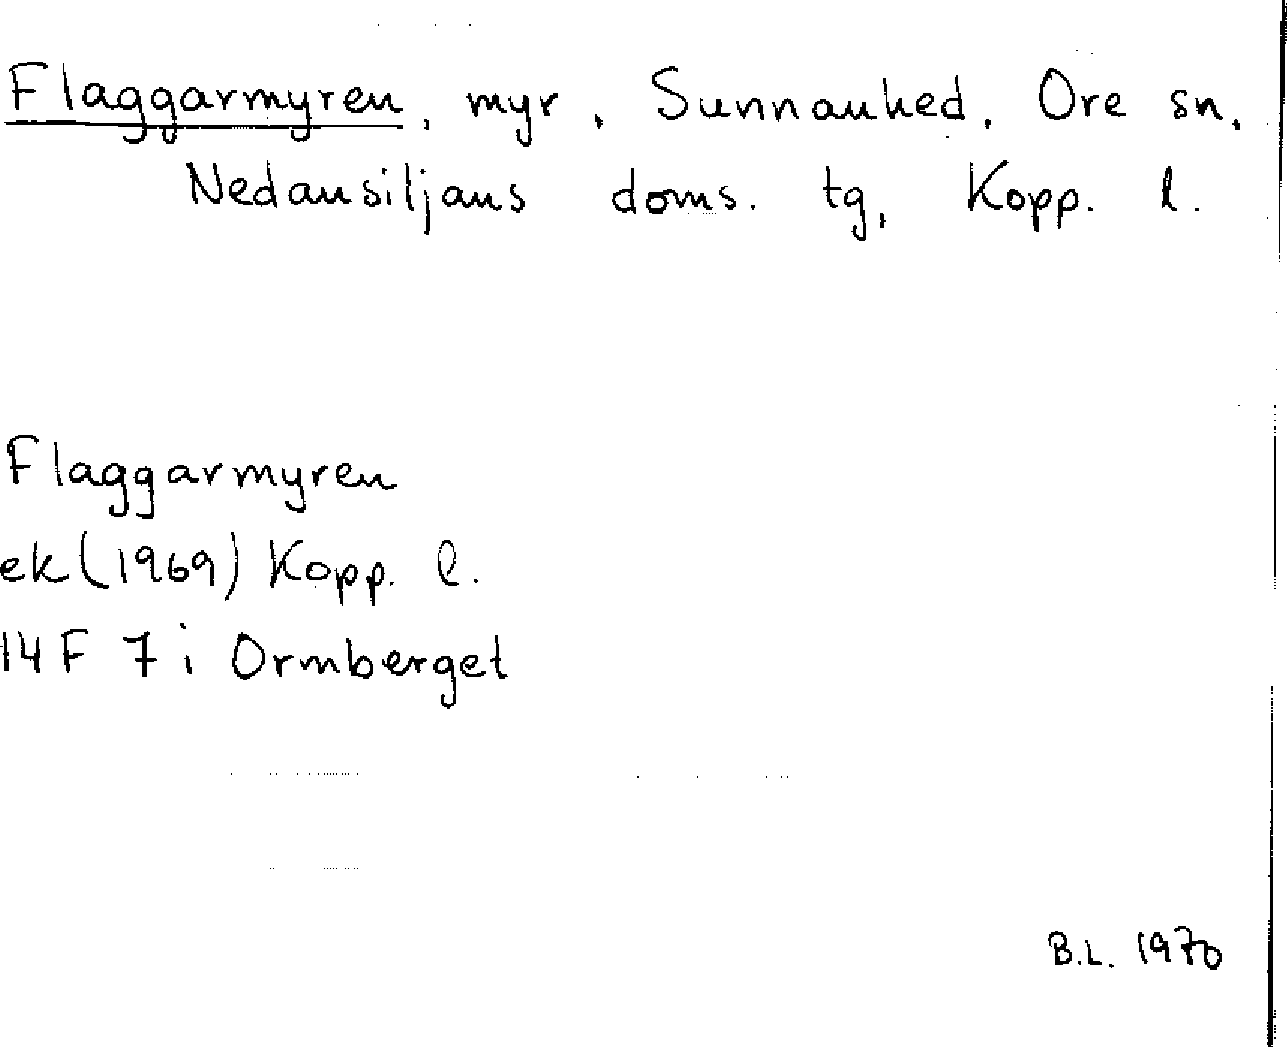 Flaggarmyren, myr, Sunnanhed, Ore sn,
Nedansiljans doms. tg, Kopp. l.
Flaggarmyren
ek (1969) Kopp. l.
14F 7 i Ormberget
B.L. 1970